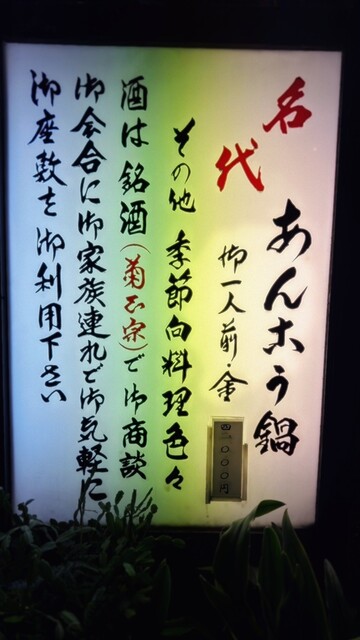 名代
あんこう鍋
御一人前・金
その他 季節向料理色々
酒は銘酒(菊正宗)で御商談
御会合に御家族連れで御気軽に
御座敷を御利用下さい